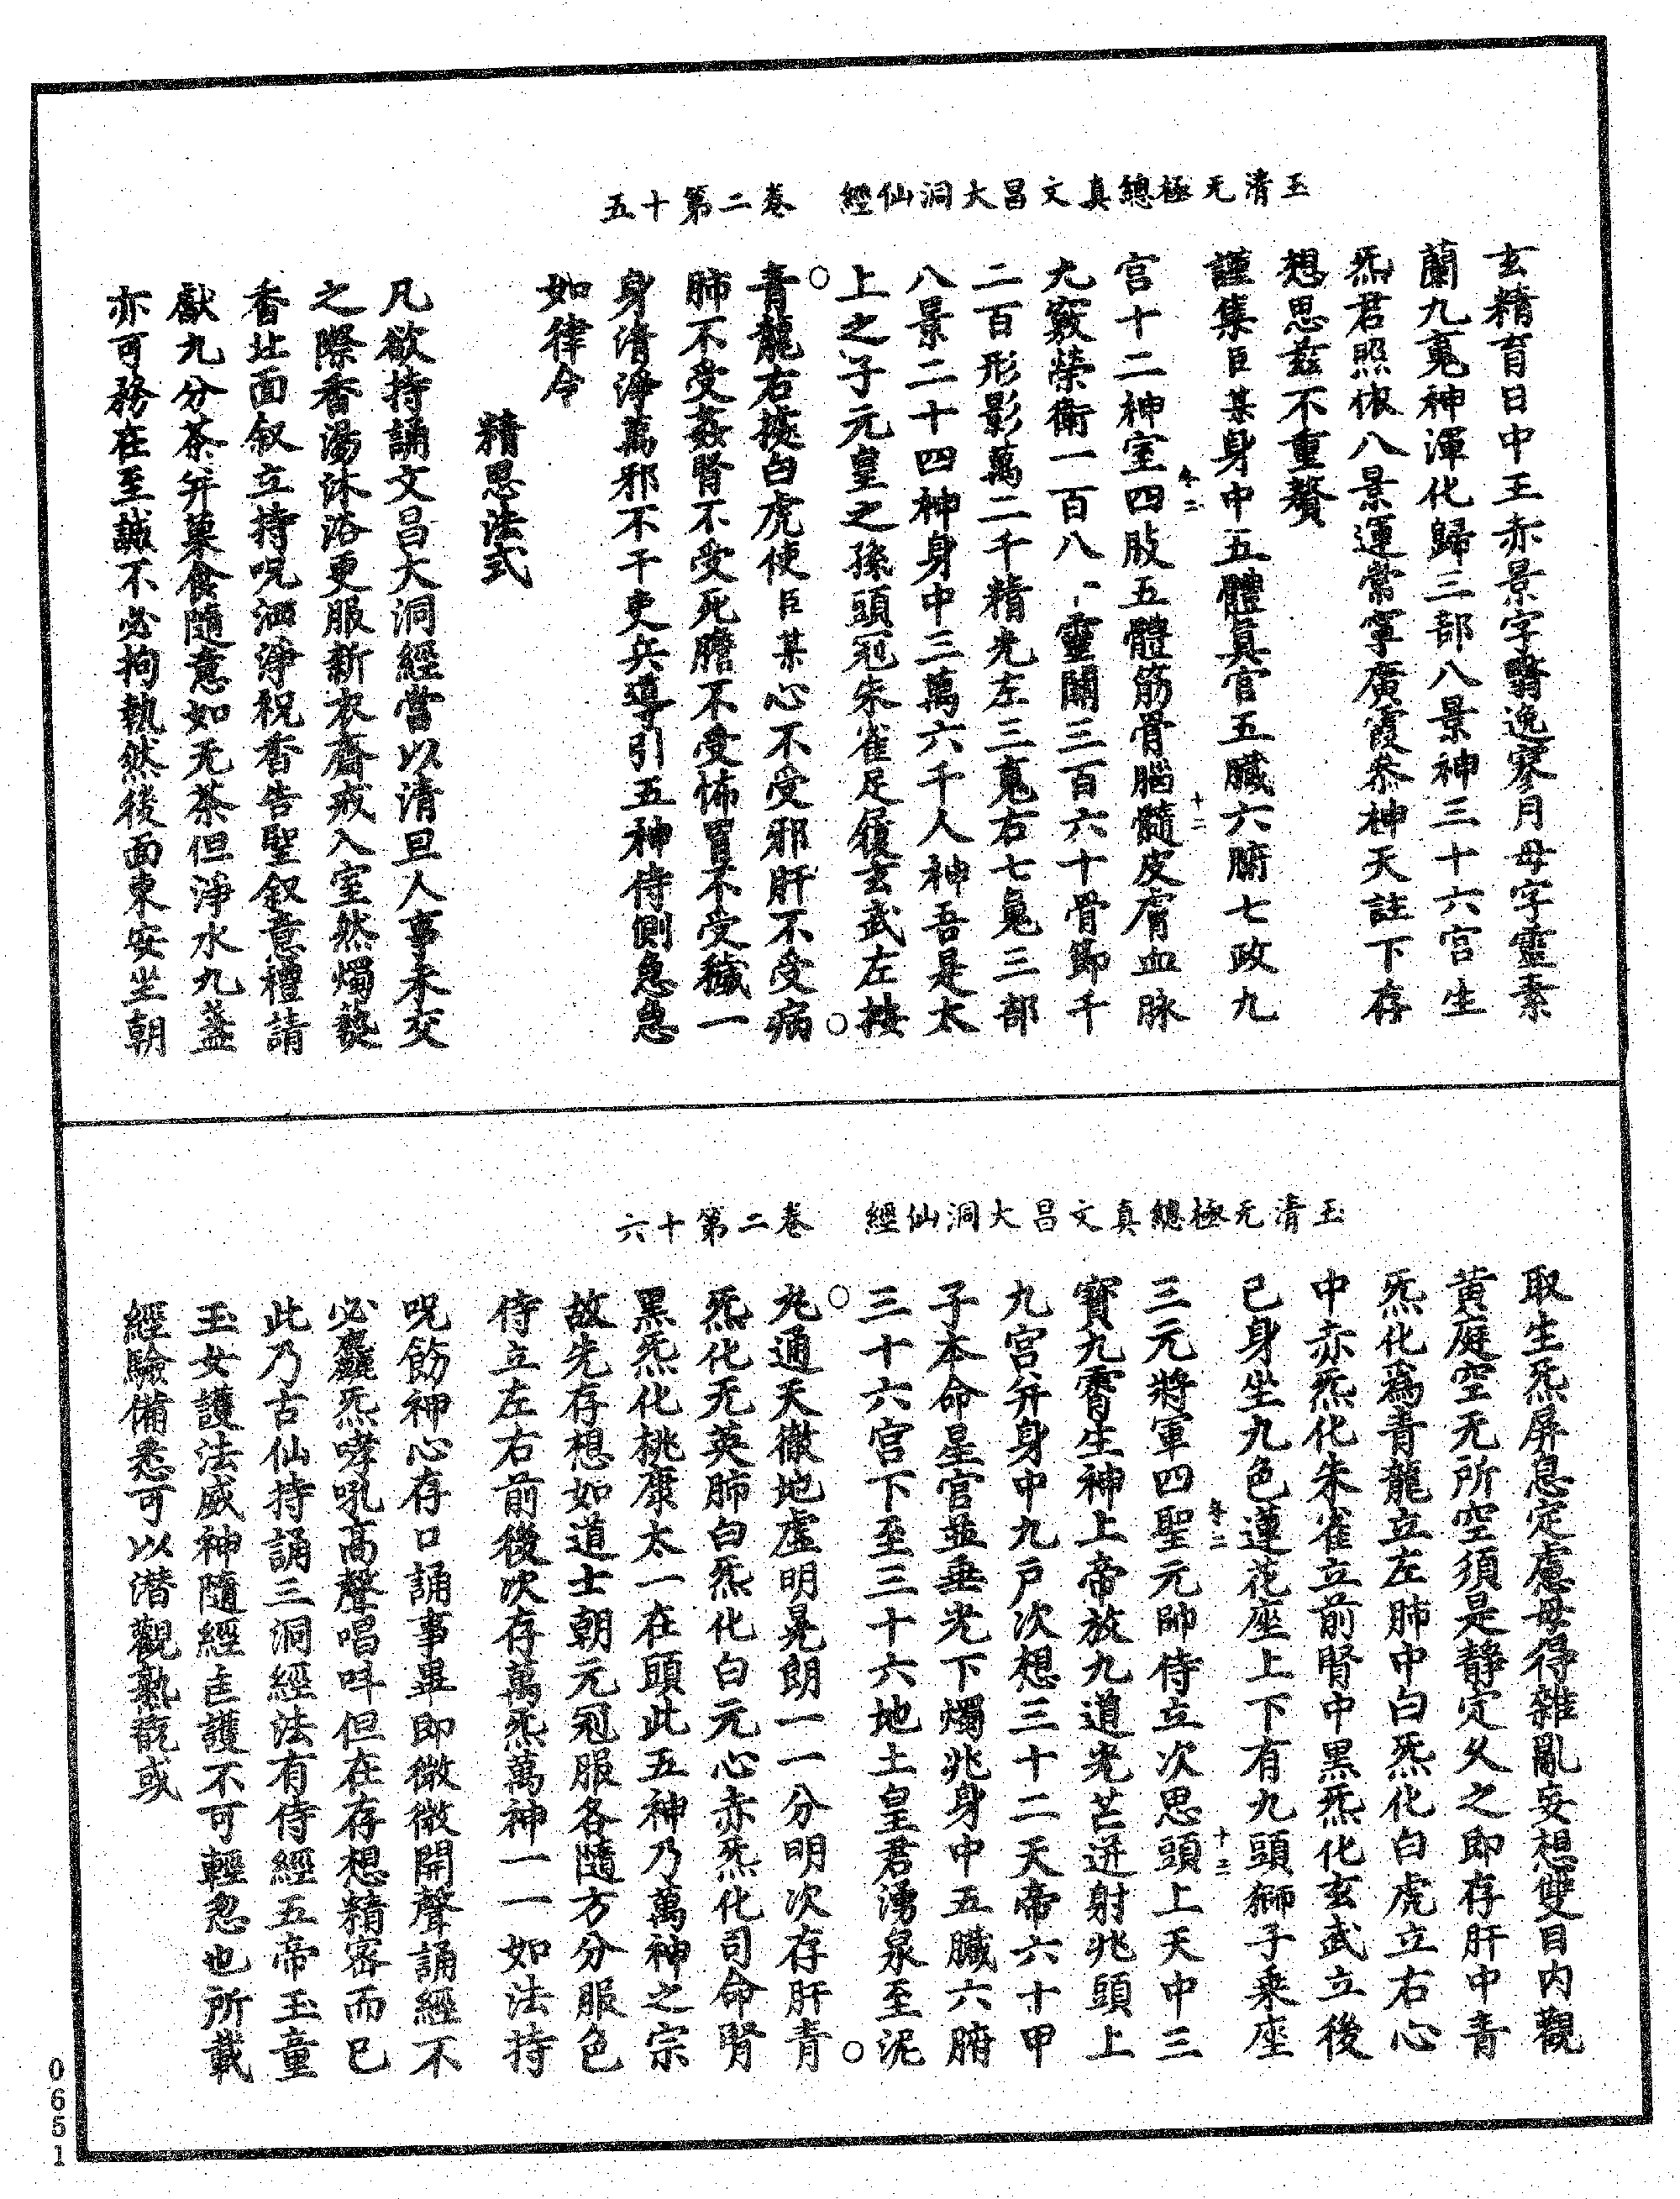 玉清无極總真文昌大洞仙經　卷二第十五
玄精育日中王赤景字翳逸寥月母字靈素
蘭九䰟神渾化歸三部八景神三十六宮生
炁君照依八景運常寜廣霞叅神天註下存
想思玆不重贅
謹集臣某身中五體真官五臟六腑七政九
宮十二神室四肢五體筋骨腦髓皮膚血脉
九竅榮衛一百八、靈關三百六十骨節千
二百形影萬二千精光左三䰟右七魄三部
八景二十四神身中三萬六千人神吾是太
上之子元皇之孫頭冠朱雀足履玄武左接
青龍右挾白虎使臣某心不受邪肝不受病
肺不受姦腎不受死膽不受怖胃不受穢一
身清淨萬邪不干吏兵導引五神侍側急急
如律令
精思法式
凡欲持誦文昌大洞經當以清旦人事未交
之際香湯沐浴更服新衣齋戒入室然燭爇
香北面叙立持呪洒淨祝香告聖叙意禮請
獻九分茶并菓食隨意如无茶但淨水九盞
亦可務在至誠不必拘執然後面東安坐朝
卷二
十二
玉清无極總真文昌大洞仙經　卷二第十六
取生炁屏息定慮毋得雜亂妄想雙目內觀
黃庭空无所空須是靜定久之即存肝中青
炁化爲青龍立左肺中白炁化白虎立右心
中赤炁化朱雀立前腎中黑炁化玄武立後
己身坐九色蓮花座上下有九頭獅子乘座
三元將軍四聖元帥侍立次思頭上天中三
寳九霄生神上帝放九道光芒迸射兆頭上
九宮并身中九戸次想三十二天帝六十甲
子本命星官並垂光下燭兆身中五臟六腑
三十六宮下至三十六地土皇君湧泉至泥
丸通天徹地虛明晃朗一一分明次存肝青
炁化无英肺白炁化白元心赤炁化司命腎
黑炁化桃康太一在頭此五神乃萬神之宗
故先存想如道士朝元冠服各隨方分服色
侍立左右前後次存萬炁萬神一一如法持
呪飭神心存口誦事畢即微微開聲誦經不
必麤炁哮吼高聲唱叫但在存想精密而已
此乃古仙持誦三洞經法有侍經五帝玉童
玉女護法威神隨經守護不可輕忽也所載
經驗備悉可以潛觀熟翫或
卷二
十三
0651